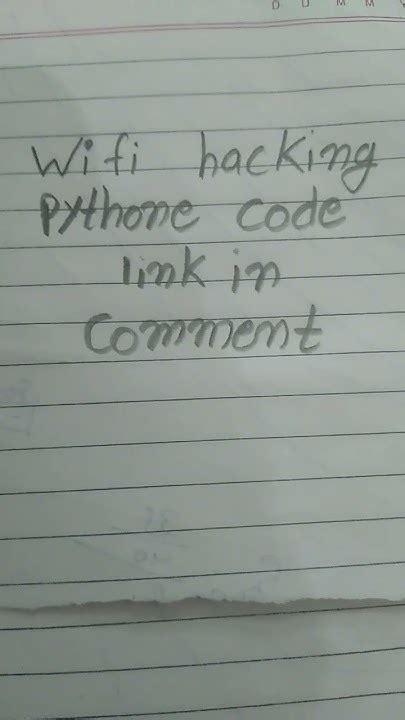 Wifi hacking
Pythone code
link in
Comment